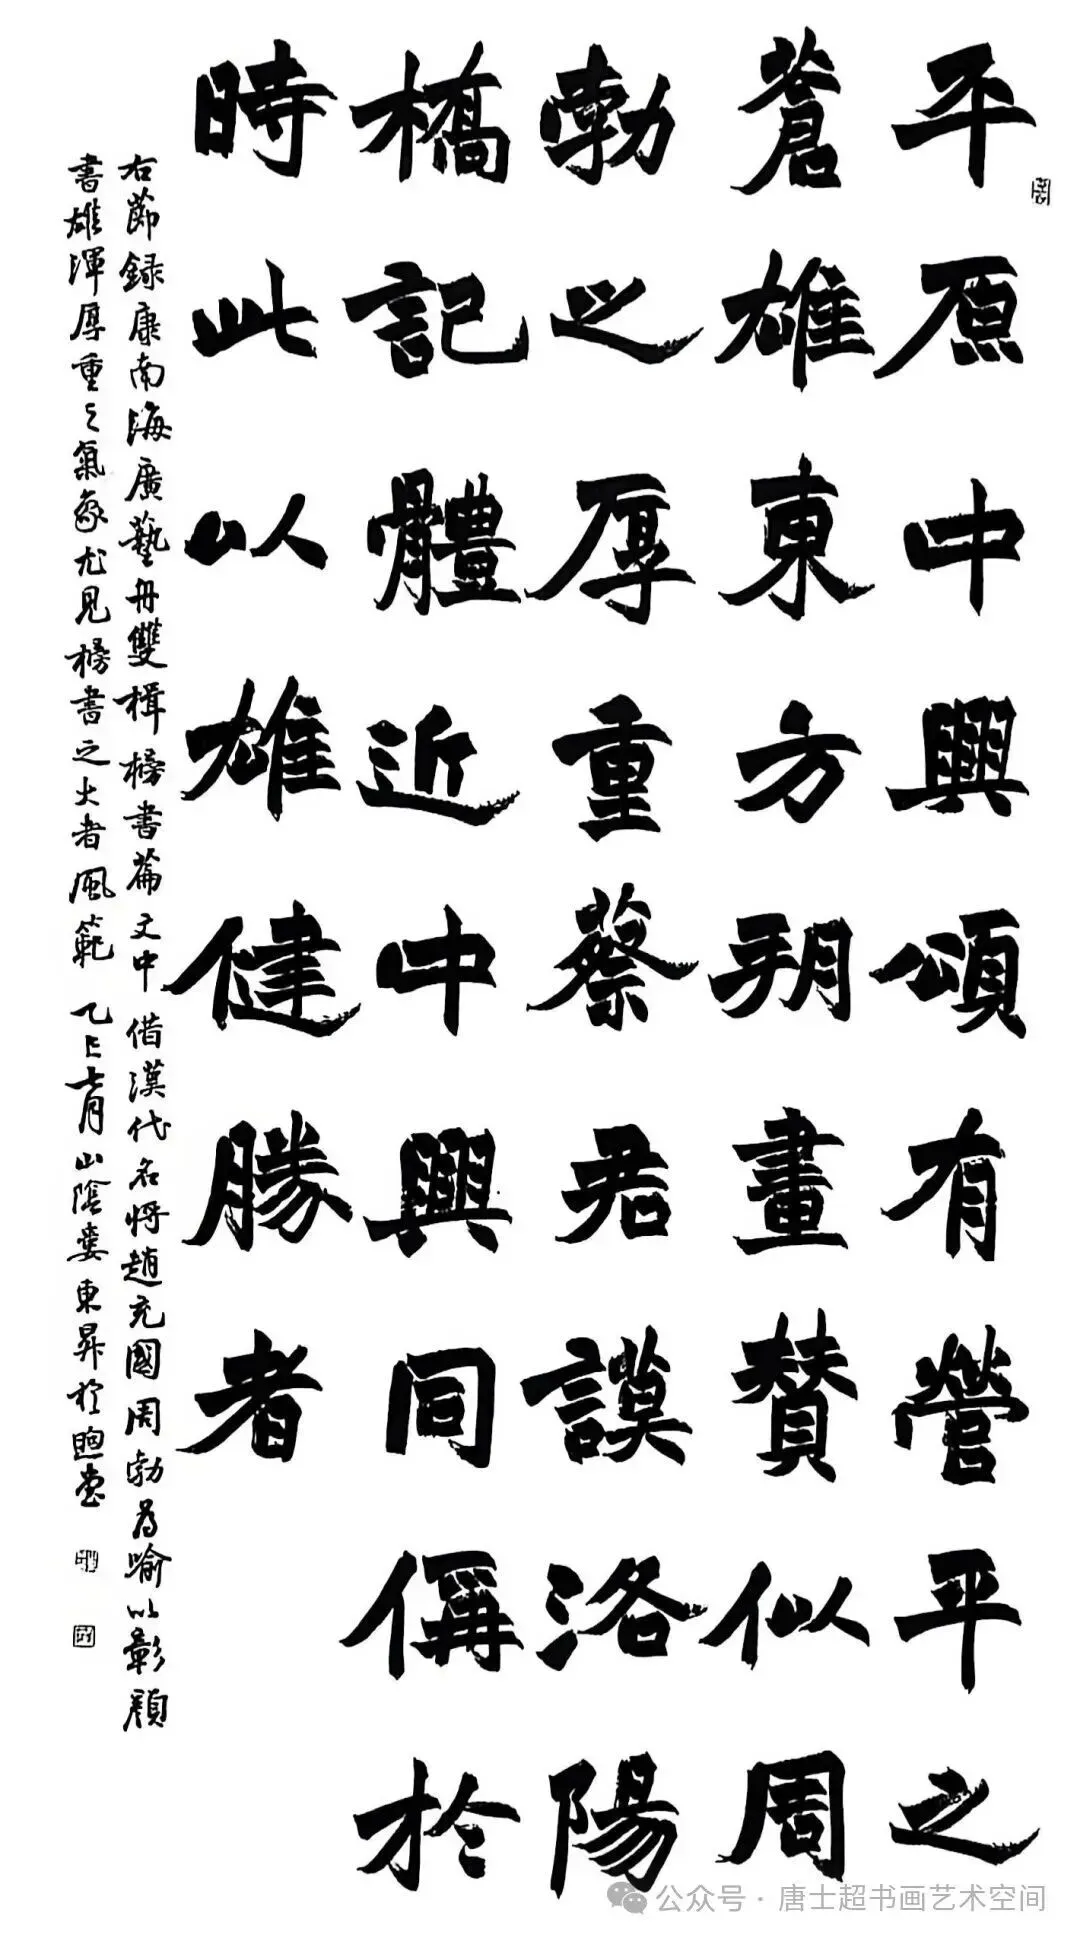 平原中興頌有營平之
蒼雄東方朔畫賛似周
勃之厚重蔡君謨洛陽
橋記體近中興同偁於
時此以雄健勝者
右節録康南海廣藝舟雙楫榜書篇文中借漢代名將趙充國周勃為喻以彰顔
書雄渾厚重之氣象尤見榜書之大者風範 乙巳七月山陰婁東昇於煦堂
公众号·唐士超书画艺术空间